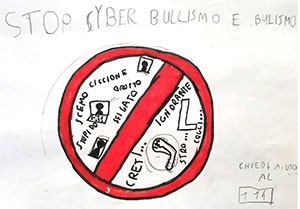 STOP CYBER BULLISMO E BULISMO
SCEMO
CICCIONE
BRUTTO
STUPIDO
SFIGATO
IGNORANTE
L
CRET...
STRO...
CHIEDI AIUTO
AL
114